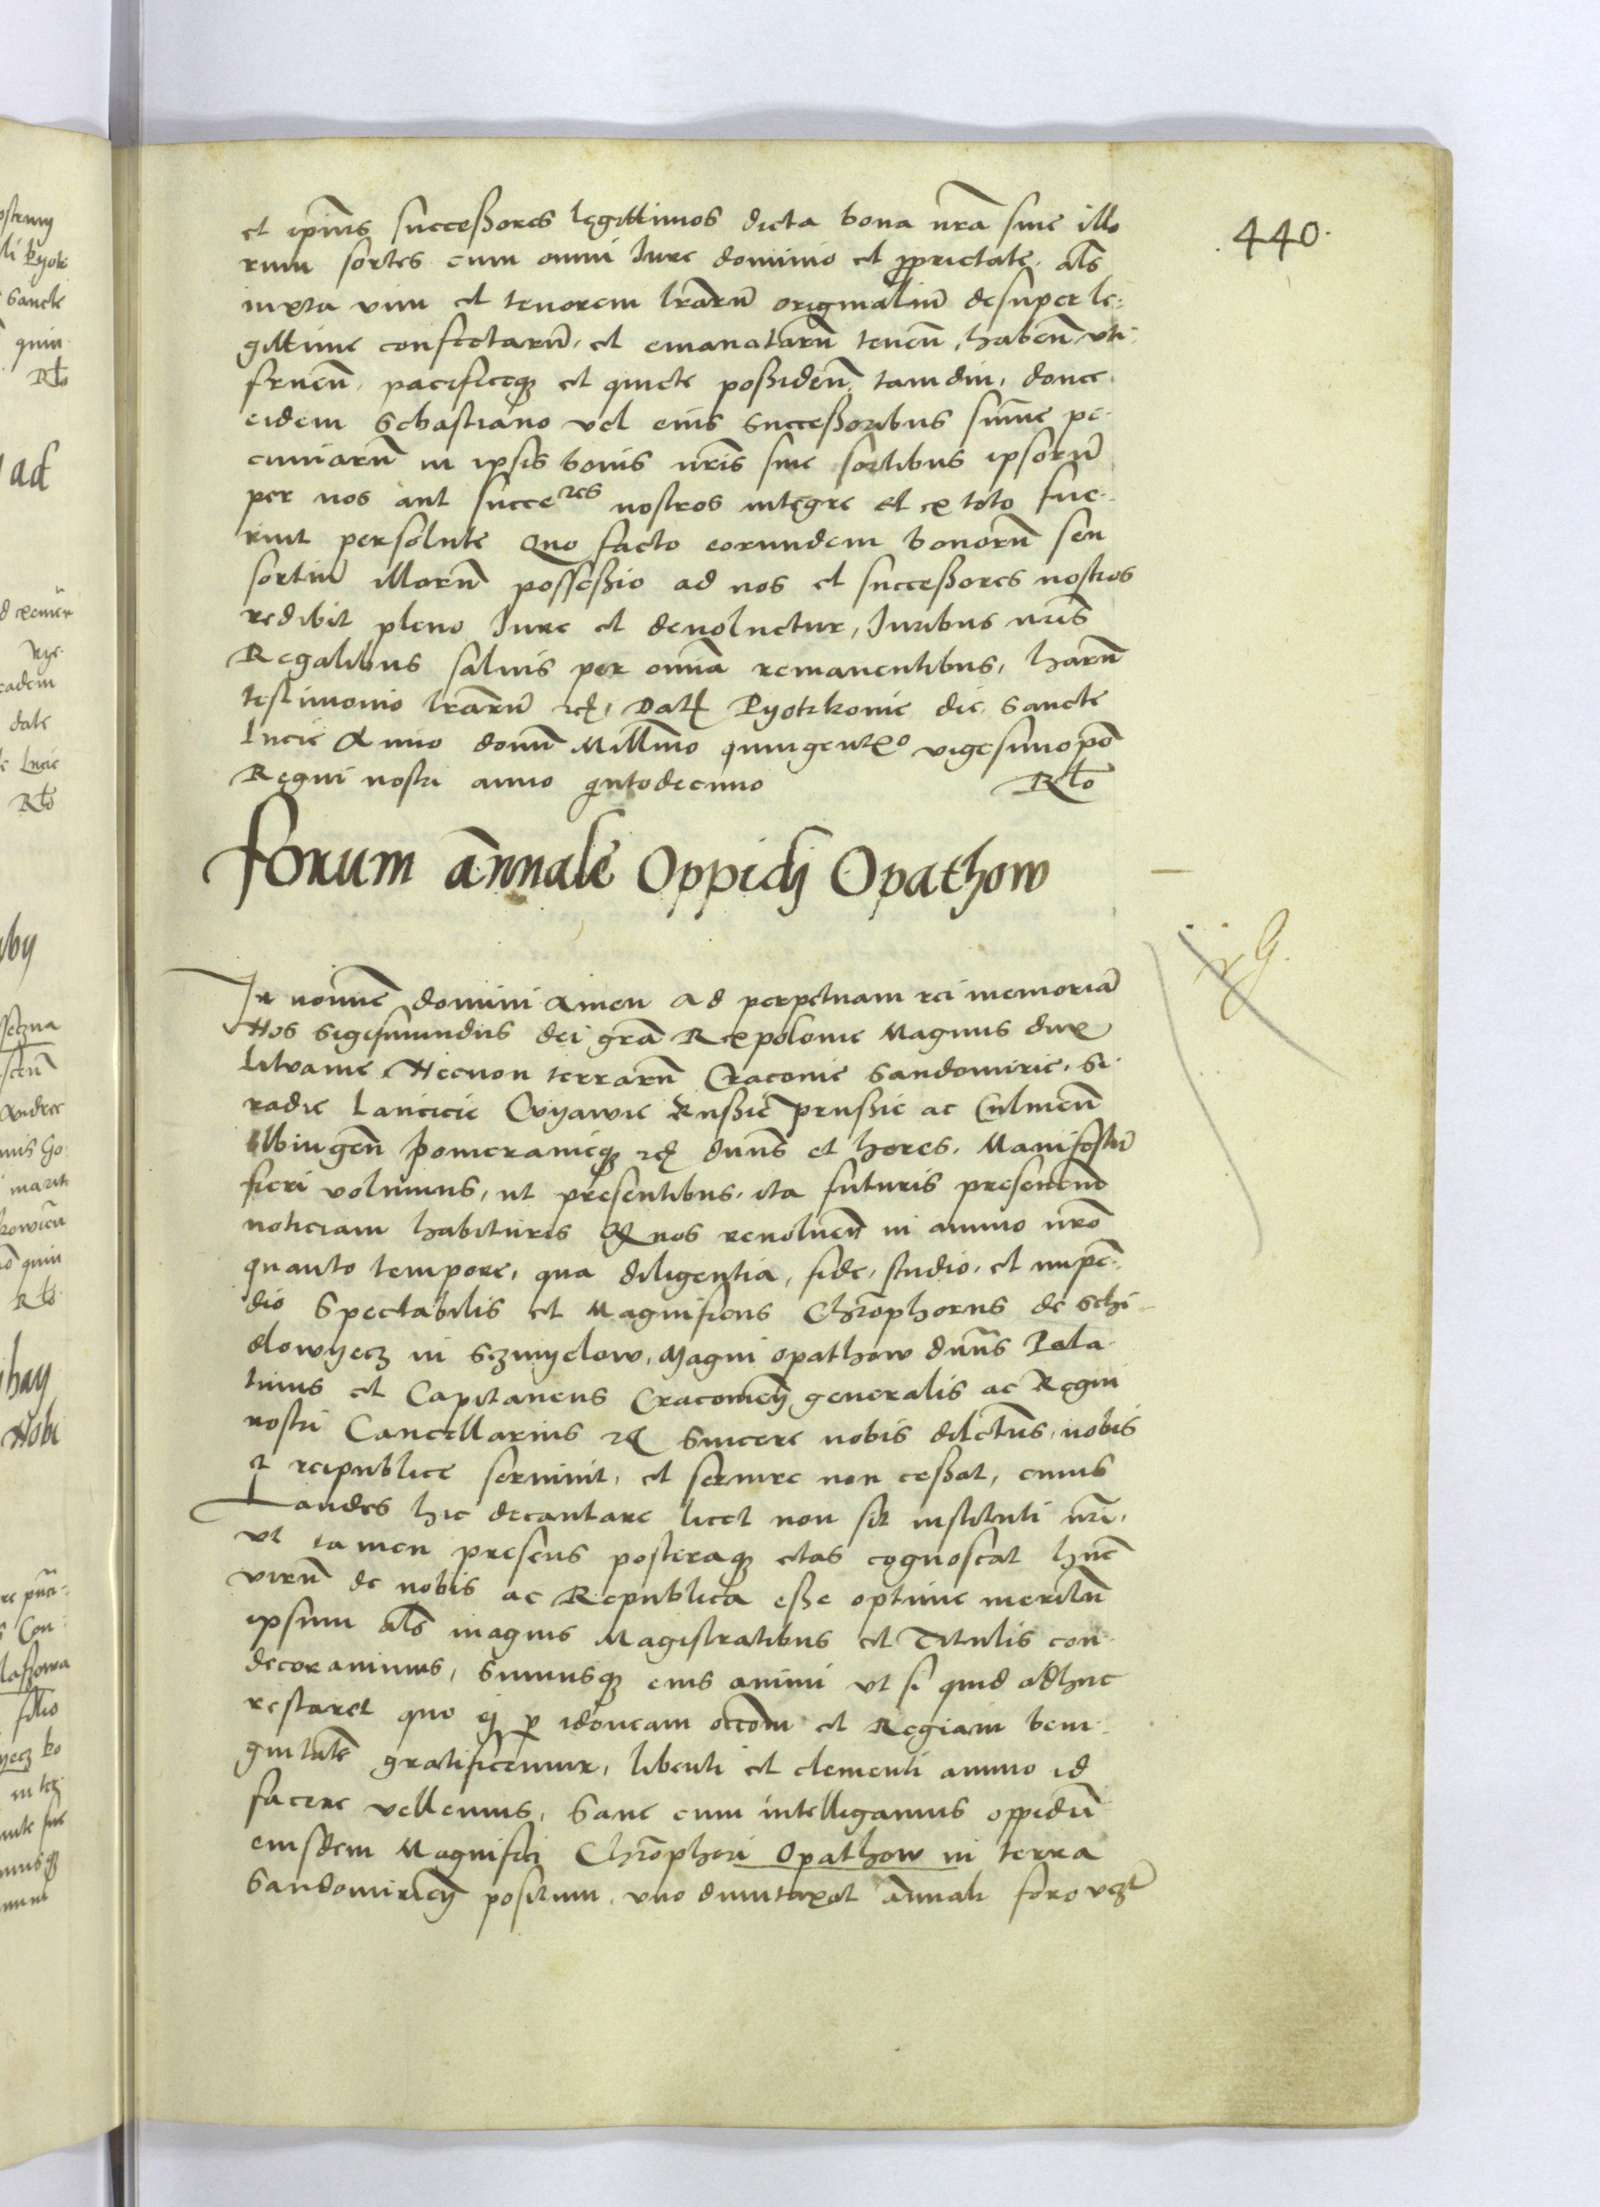 440.
et ipīus successores legittimos dicta bona nrā siue illo
rum sortes cum omni Iure dominio et proprietate als
iuxta vim et tenorem lrārū originaliū desuper le:
gittime confectarū, et emanatarū tenēn, habēn, vti
fruēn, pacificeq̄ et quiete possidēn, tamdiu, donec
eidem Sebastiano vel eius successoribus sūme pe
cuniarū in ipsis bonis nr̄is siue sortibus ipsorū
per nos aut succeres nostros integre et ex toto fue
rint persolute Quo facto eorundem bonorū seu
sortiū illorū possessio ad nos et successores nostros
redibit pleno Iure et deuoluetur, Iuribus nr̄is
Regalibus saluis per omnā remanentibus, harū
testimonio lrārū etc, Datt Pyotrkouie die Sancte
lucie Anno domī Millmo quingentxo vigesimo pō
Regni nostri anno quintodecimo Rlo
Forum ānnale Oppidj Opathow
In nomīe domini Amen Ad perpetuam rei memoriā
Nos Sigismundus dei grā Rex polonie Magnus dux
Lituanie, Necnon terrarū Cracouie Sandomirie, Si
radie Lancicie Cuyawie Russie prussie ac Culmeñ
Elbingeñ Pomeranieq̄ etc dn̄ns et heres, Manifestū
fieri volumus, ut presentibus, ita futuris presenciū
noticiam habituris Qz nos reuoluen in animo nrō
quanto tempore, qua diligentia, fide, studio, et impē
dio Spectabilis et Magnificus Chrōphorus de Schi
dlowyecz in Szmyelow, Magni Opathow dn̄ns Pala
tinus et Capitaneus Cracouieñ generalis ac Regni
nostri Cancellarius etc Sincere nobis dilectus, nobis
et reipublice seruiuit, et seruire non cessat, cuius
Laudes hic decantare licet non sit instituti nrī,
vt tamen presens posteraq̄ etas cognoscat hūc
virū de nobis ac Republica esse optime meritū
ipsum als magnis Magistratibus et Titulis con
decorauimus, Sumusq̄ eius animi vt si quid adhuc
restaret quo ej per idoneam occōm et Regiam beni
gnitatē gratificemur, libenti et clementi animo id
facere vellemus, Sane cum intelligamus oppidū
eiusdem Magnifici Chrōphori Opathow in terra
Sandomirieñ positum, vno dumtaxat ānnali foro vtj